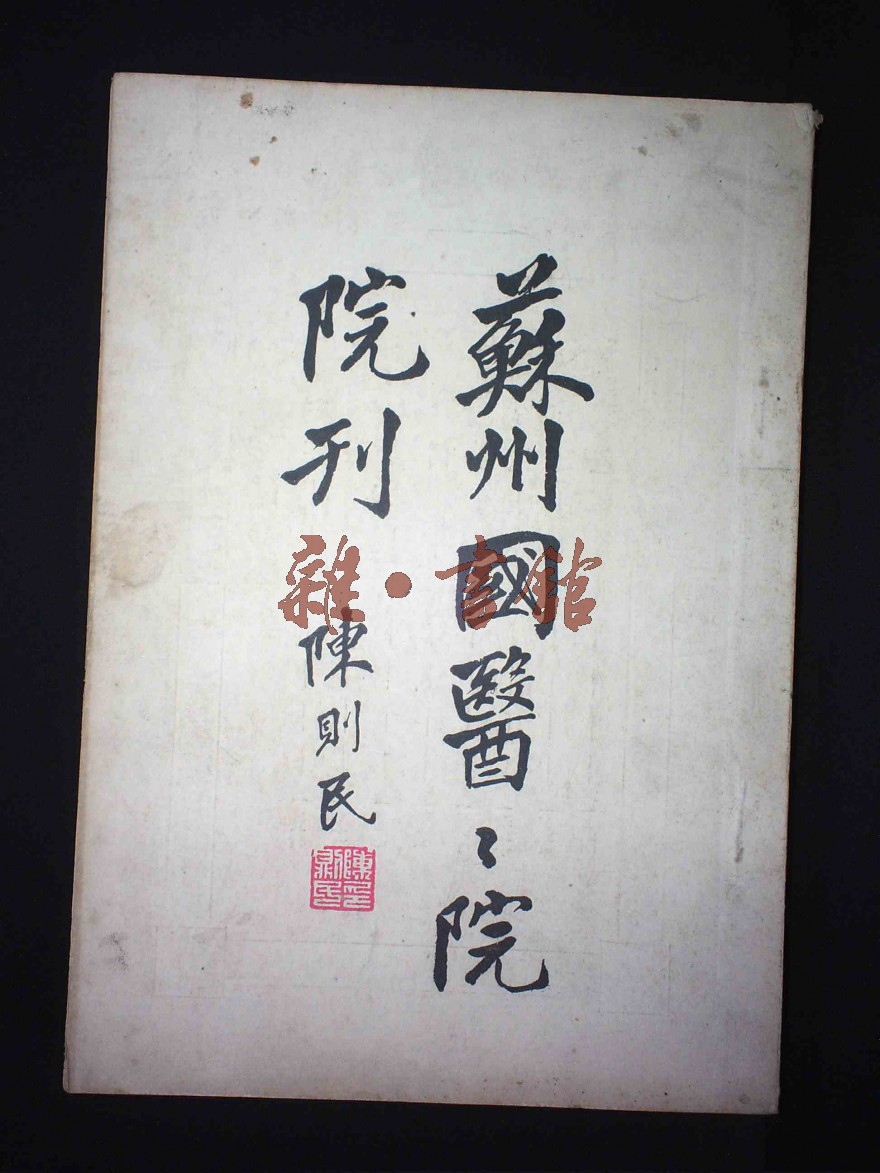 蘇州國醫醫院
院刊 陳則民
陳則民印
雜・書館